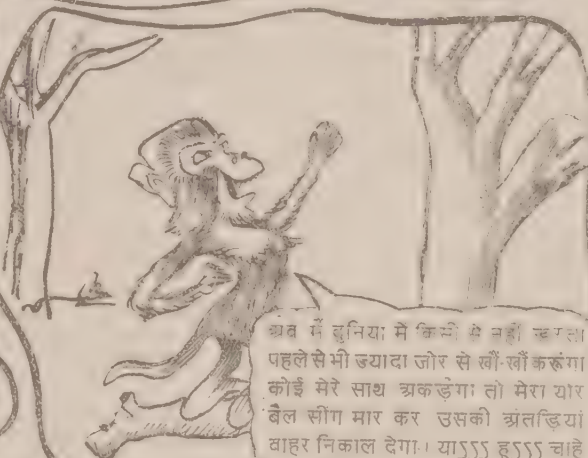 अब में दुनिया मे किसी से नहीं डरता
पहले से भी ज्यादा जोर से खौं-खौं करूंगा
कोई मेरे साथ अकड़ेगा तो मेरा यार
बैल सींग मार कर उसकी अंतड़ियां
बाहर निकाल देगा। याऽऽऽ हूऽऽऽ चाहे